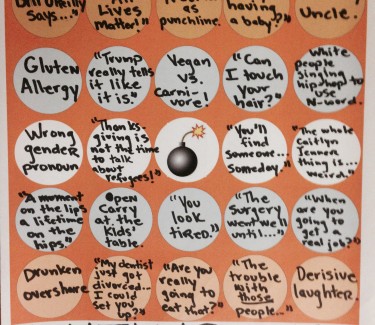 O'Reilly
Says..."
All
Lives
Matter!"
as
punchline.
having
a baby?"
Uncle.
Gluten
Allergy
"Trump
really tells
it like
it is."
Vegan
vs.
Carni-
vore!
"Can
I touch
your
hair?"
White
people
singing
hip-hop to
use
N-word.
Wrong
gender
pronoun
"Thanks-
giving is
not the time
to talk
about
refugees!"
"You'll
find
someone...
Someday."
"The whole
Caitlyn
Jenner
thing is...
weird."
"A moment
on the lips
a lifetime
on the
hips."
Open
Carry
at the
Kids'
table.
"You
look
tired."
"The
surgery
went well
until..."
"When are
you going
to get a
real job?"
Drunken
overshare
"My dentist
just got
divorced...
I could
set you
up?"
"Are you
really
going to
eat that?"
"The
trouble
with
those
people..."
Derisive
laughter.